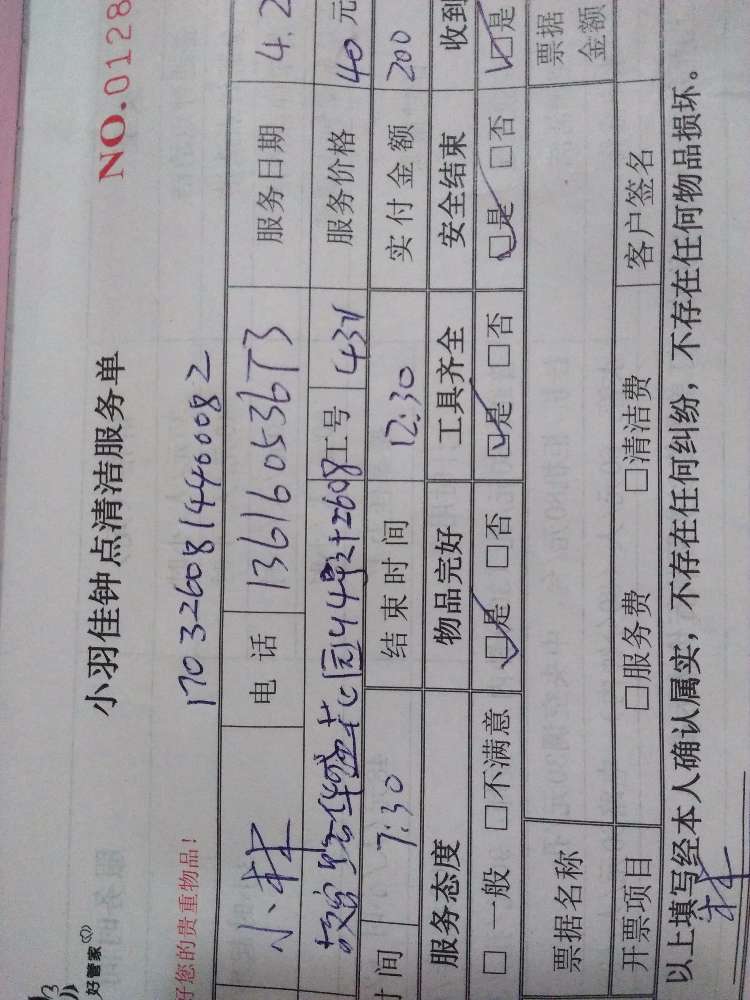 好管家
小羽佳钟点清洁服务单
NO.0128
好您的贵重物品!
170326081440082
小林 电话 13616053673 服务日期 4.2
华盛花园44号2梯2608 工号 431 服务价格 40元
时间 7:30 结束时间 12:30 实付金额 200
服务态度 物品完好 工具齐全 安全结束 收到
□一般 □不满意 ☑是 □否 ☑是 □否 ☑是 □否 ☑是
票据名称 票据金额
开票项目 □服务费 □清洁费 客户签名
以上填写经本人确认属实，不存在任何纠纷，不存在任何物品损坏。
林